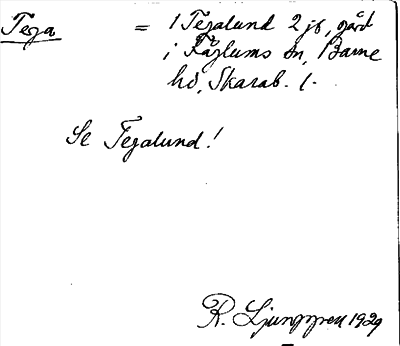 Tega = / Tegalund 2 js, gård
i Fåglums sn, Barne
hd, Skarab. l.
Se Tegalund!
R. Ljunggren 1929